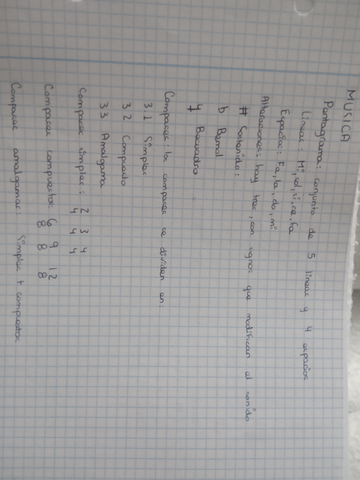 MUSICA
Pentagrama: conjunto de 5 lineas y 4 espacios
Lineas: Mi, sol, si, re, fa
Espacios: Fa, la, do, mi
Alteraciones: hay tres, son signos que modifican el sonido
# Sostenido:
b Bemol
♮ Becuadro
Compases: los compases se dividen en:
3.1 Simples
3.2 Compuesto
3.3 Amalgama
Compases simples: 2 3 4
4 4 4
Compases compuestos 6 9 12
8 8 8
Compases amalgamas Simples + compuestos